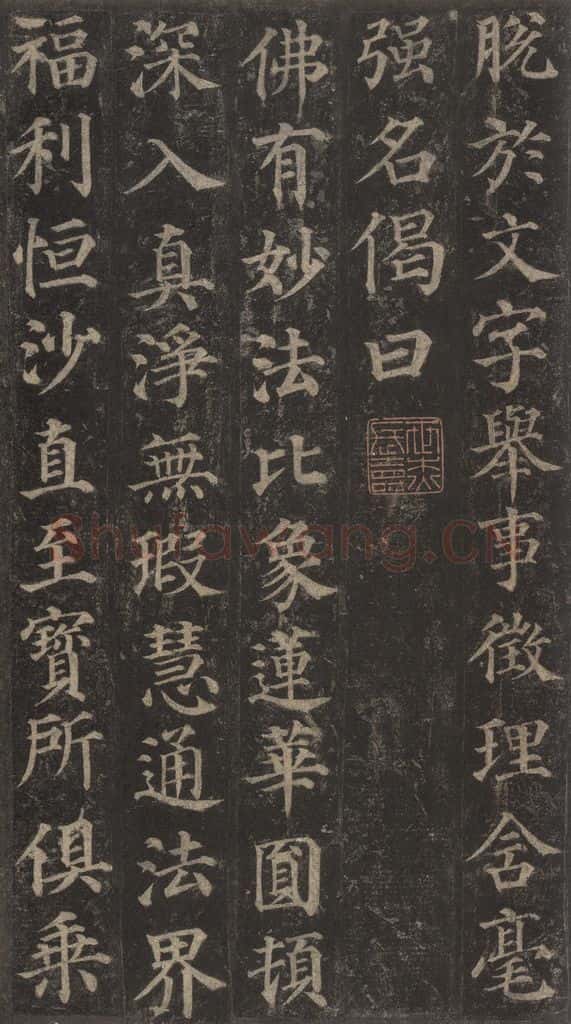 脱於文字舉事徵理含毫
强名偈曰
佛有妙法比象蓮華圎頓
深入真淨無瑕慧通法界
福利恒沙直至寶所俱乗
shufawang.CN